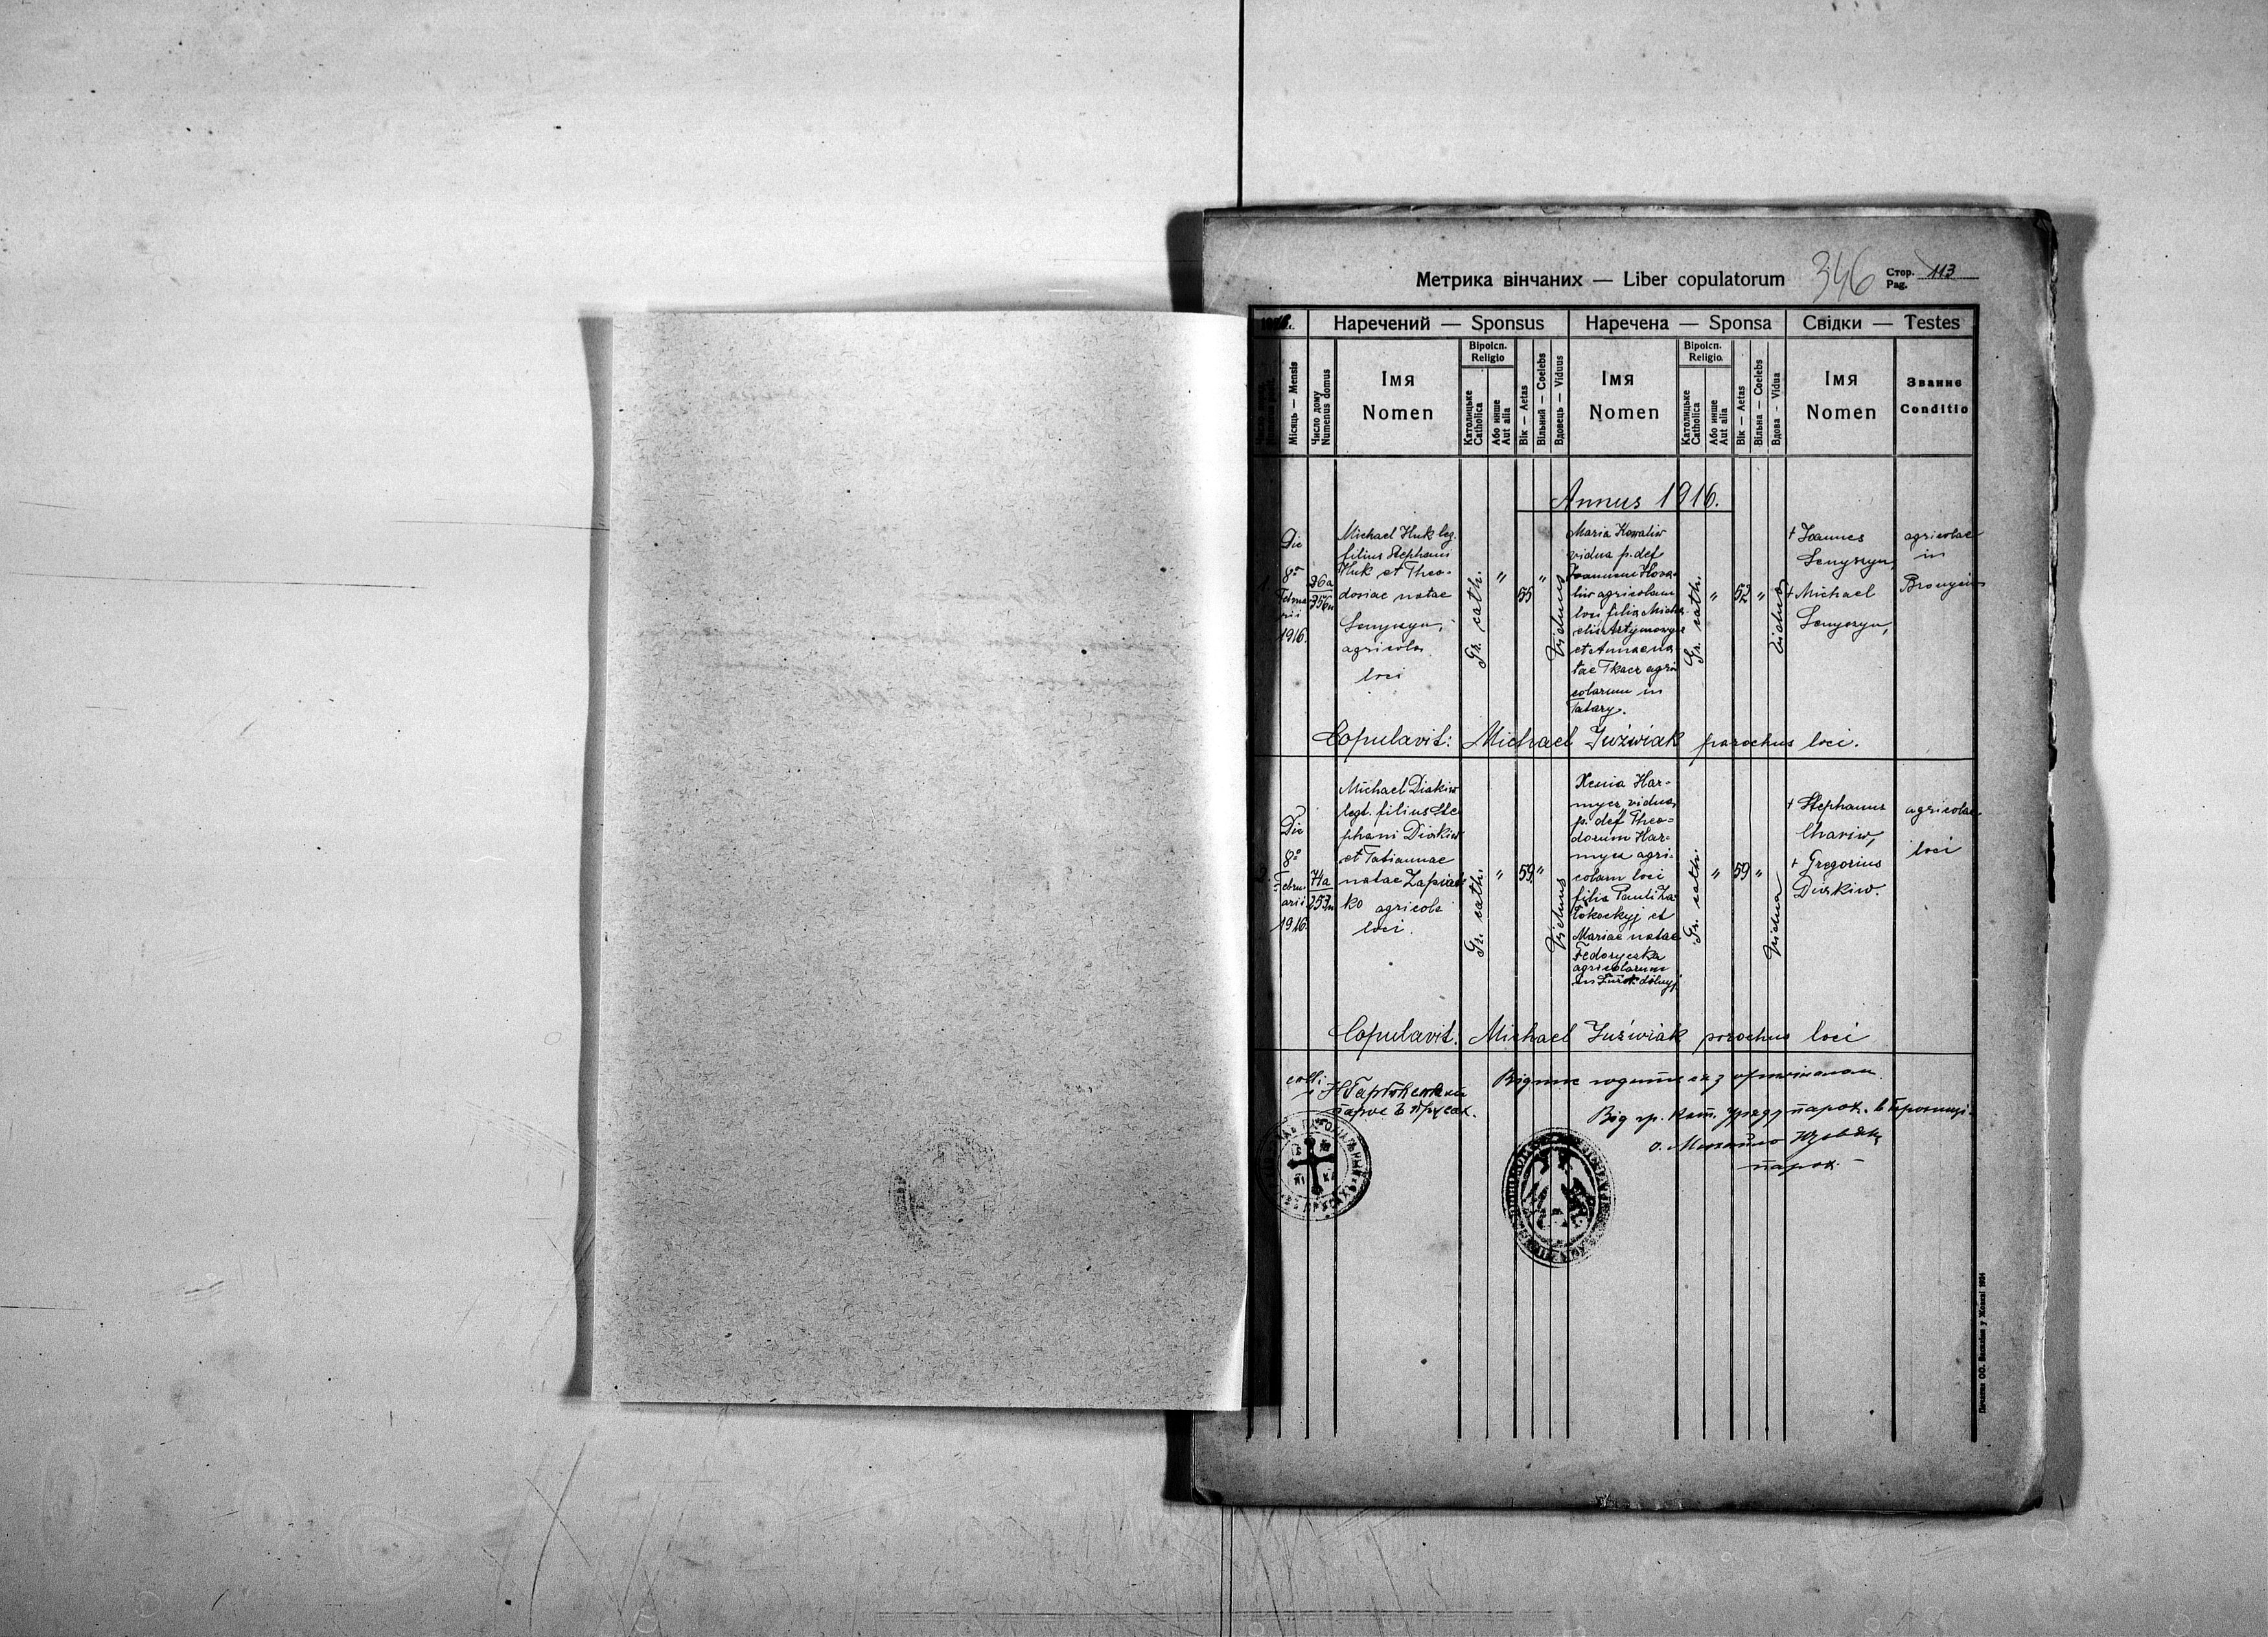 Метрика вінчаних — Liber copulatorum
346
Стор. 113
Pag.
Наречений — Sponsus
Наречена — Sponsa
Свідки — Testes
Місяць — Mensis
Число дому
Numenus domus
Імя
Nomen
Віроісп.
Religio
Католицьке
Catholica
Або инше
Aut alia
Вік — Aetas
Вільний — Coelebs
Вдовець — Viduus
Імя
Nomen
Віроісп.
Religio.
Католицьке
Catholica
Або инше
Aut alia
Вік — Aetas
Вільна — Coelebs
Вдова — Vidua
Імя
Nomen
Звание
Conditio
Annus 1916.
Die
8º
Februa
rii
1916.
26a
256m
Michael Huk leg.
filius Stephani
Huk et Theo-
dosiae natae
Senyszyn,
agricola
loci
Gr. cath.
"
55
"
Viduus
Maria Kowaliw
vidua p. def
Joannem Kova-
liw agricolam
loci filia Micha-
elis Artymowycz
et Annae na
tae Tkacz agri
colarum in
Tatary.
Gr. cath.
"
52
"
Vidua
+ Joannes
Senyszyn,
+ Michael
Senyszyn,
agricolae
in
Bronycia
Copulavit: Michael Juźwiak parochus loci.
2.
Die
8º
Febru
arii
1916.
74a
253m
Michael Diakiw
legt. filius Ste
phani Diakiw
et Tatiannae
natae
ko agricola
loci.
Gr. cath.
"
59
"
Viduus
Xenia Har-
mycz, vidua
p. def Theo-
dorum Har-
mycz agri-
colam loci
filia Pauli Za
łokockyj et
Mariae natae
Fedoryczka
agricolarum
in
Gr. cath.
"
59
"
Vidua
+ Stephanus
Chariw,
+ Gregorius
Diakiw.
agricolae
loci
Copulavit. Michael Juźwiak parochus loci
coll:
парох в
Відпис годиться з оригіналом.
Від гр. кат. уряду парох. в Брониці.
о. Михайло Юзвяк
парох.
Печатня ОО. Василіян у Жовкві 1924